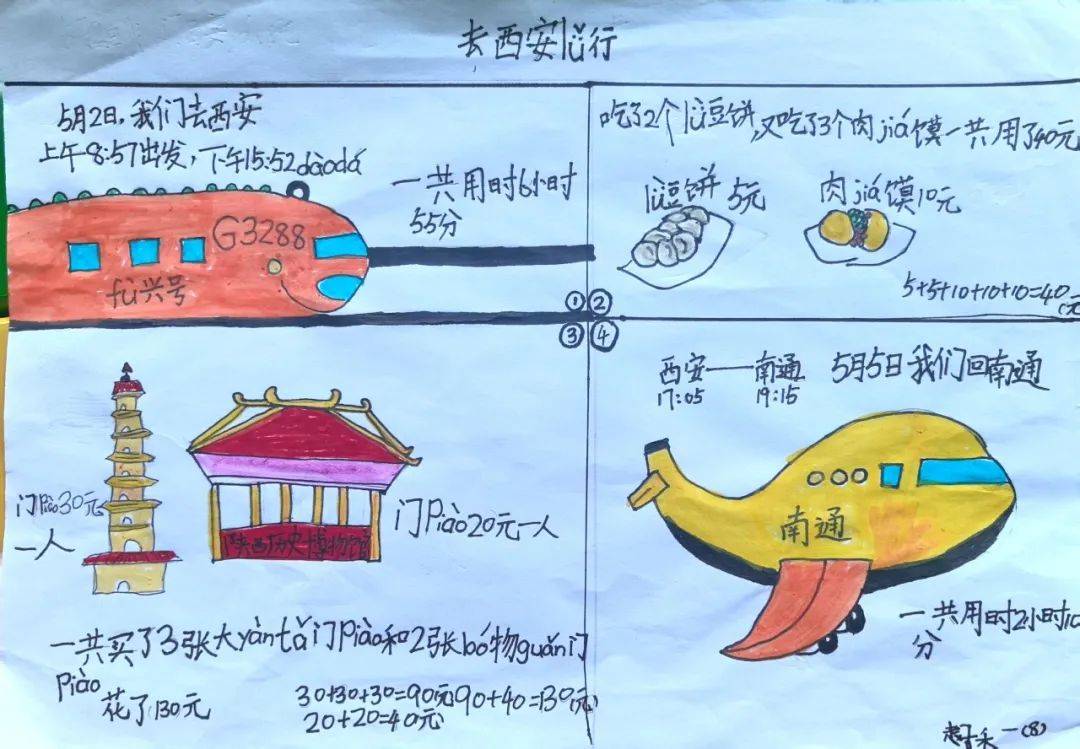 去西安lǚ行
5月2日，我们去西安
上午8:57出发，下午15:52dàodá
一共用时6小时
55分
G3288
fù兴号
①
吃了2个lǜ豆饼，又吃了3个肉jiá馍一共用了40元
lǜ豆饼5元
肉jiá馍10元
5+5+10+10+10=40
(元
②
③
门Piào30元
一人
陕西历史博物馆
门Piào20元一人
一共买了3张大yàntǎ门Piào和2张bó物guǎn门
Piào
花了130元
30+30+30=90元 90+40=130(元)
20+20=40元
④
西安——南通
17:05 19:15
5月5日我们回南通
南通
一共用时2小时10
分
一(8)